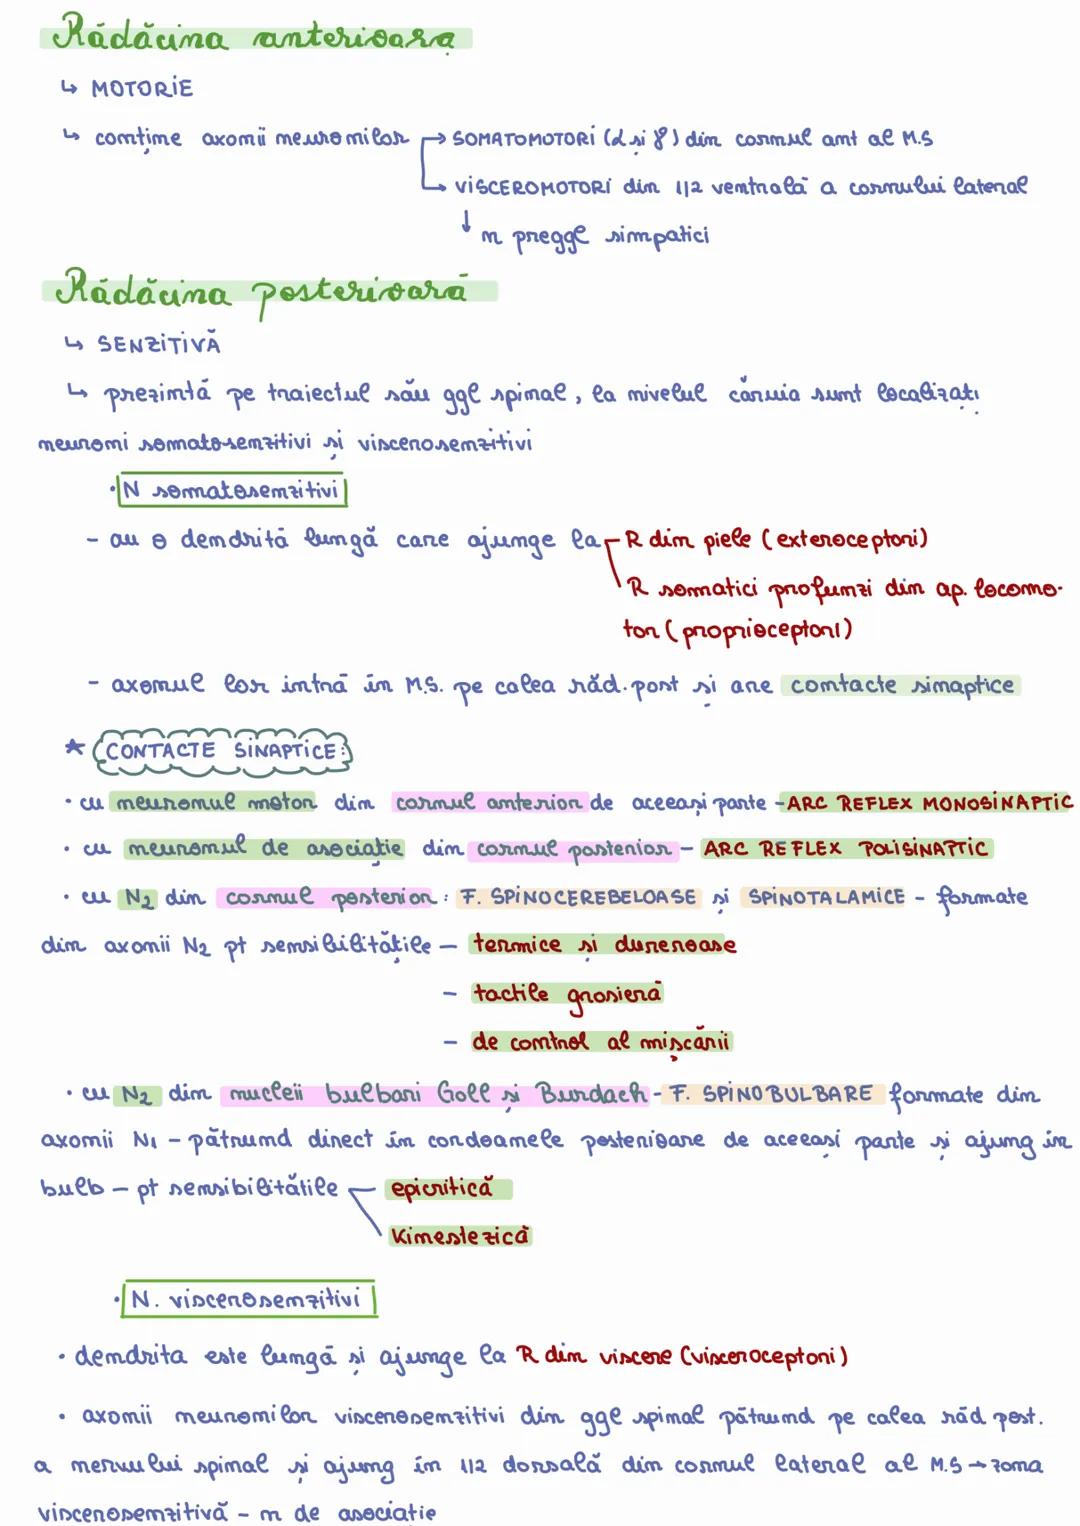 Rădăcina anterioară
↳ MOTORIE
↳ conține axonii neuronilor → SOMATOMOTORI (α și γ) din cornul ant al M.S
→ VISCEROMOTORI din 1/2 ventrală a cornului lateral
↓ n preggl simpatici
Rădăcina posterioară
↳ SENZITIVĂ
↳ prezintă pe traiectul său ggl spinal, la nivelul căruia sunt localizați
neuroni somatosenzitivi și viscerosenzitivi
• N somatosenzitivi
- au o dendrită lungă care ajunge la R din piele (exteroceptori)
R somatici profunzi din ap. locomo-
tor (proprioceptori)
- axonul lor intră în M.S. pe calea răd. post și are contacte sinaptice
* CONTACTE SINAPTICE:
• cu neuronul motor din cornul anterior de aceeași parte - ARC REFLEX MONOSINAPTIC
• cu neuronul de asociație din cornul posterior - ARC REFLEX POLISINAPTIC
• cu N2 din cornul posterior: F. SPINOCEREBELOASE și SPINOTALAMICE - formate
din axonii N2 pt sensibilitățile - termice și dureroase
- tactile grosieră
- de control al mișcării
• cu N2 din nucleii bulbari Goll și Burdach - F. SPINOBULBARE formate din
axonii N1 - pătrund direct în cordoanele posterioare de aceeași parte și ajung în
bulb - pt sensibilitățile epicritică
Kinestezică
• N. viscerosenzitivi
• dendrita este lungă și ajunge la R din viscere (visceroceptori)
• axonii neuronilor viscerosenzitivi din ggl spinal pătrund pe calea răd post.
a nervului spinal și ajung în 1/2 dorsală din cornul lateral al M.S → zona
viscerosenzitivă - n de asociație